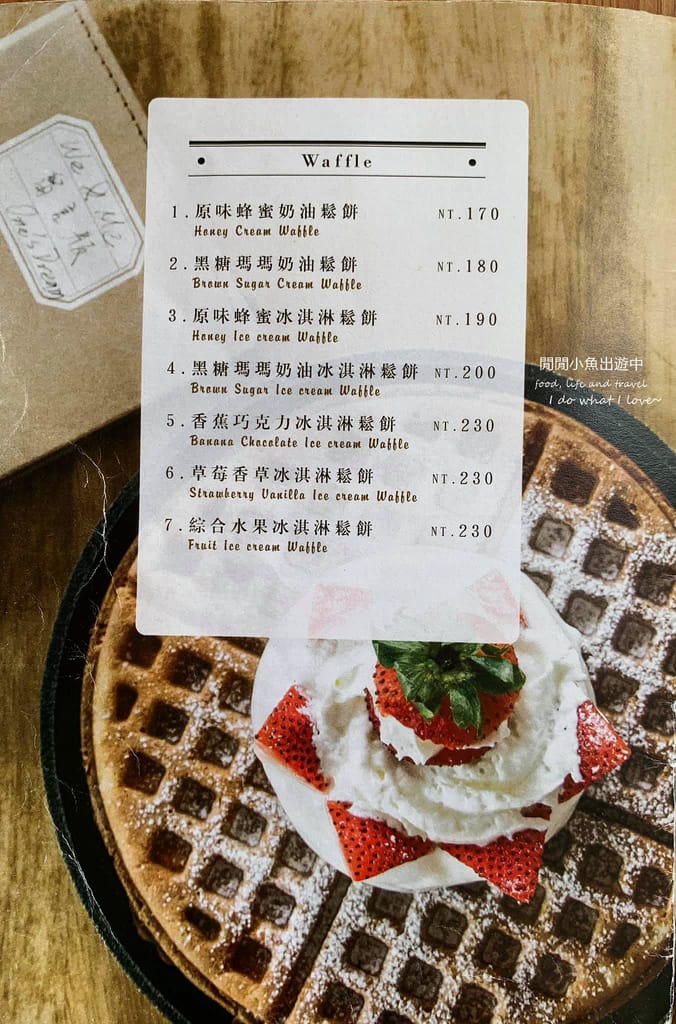 We & Me
One's Dream
Waffle
1.原味蜂蜜奶油鬆餅 NT.170
Honey Cream Waffle
2.黑糖瑪瑪奶油鬆餅 NT.180
Brown Sugar Cream Waffle
3.原味蜂蜜冰淇淋鬆餅 NT.190
Honey Ice cream Waffle
4.黑糖瑪瑪奶油冰淇淋鬆餅 NT.200
Brown Sugar Ice cream Waffle
5.香蕉巧克力冰淇淋鬆餅 NT.230
Banana Chocolate Ice cream Waffle
6.草莓香草冰淇淋鬆餅 NT.230
Strawberry Vanilla Ice cream Waffle
7.綜合水果冰淇淋鬆餅 NT.230
Fruit Ice cream Waffle
閒閒小魚出遊中
food, life and travel
I do what I love~